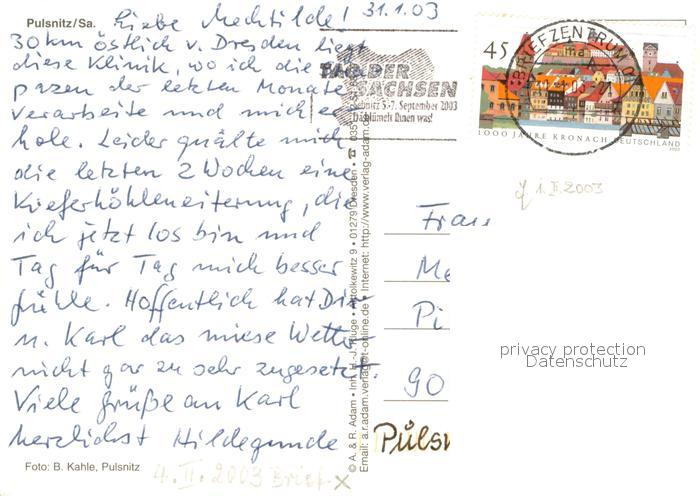 Pulsnitz/Sa.
Liebe Mechtilde! 31.1.03
30 km östlich v. Dresden liegt
diese Klinik, wo ich die
pazen der letzten Monate
verarbeite und mich er
hole. Leider quälte mich
die letzten 2 Wochen eine
Kieferhöhleneiterung, die
ich jetzt los bin und
Tag für Tag mich besser
fühle. Hoffentlich hat Dir
u. Karl das miese Wetter
nicht gar zu sehr zugesetzt.
Viele Grüße an Karl
herzlichst Hildegunde
Foto: B. Kahle, Pulsnitz
4. II. 2003 Brief X
© A. & R. Adam • Inh. H.-J. Kluge • Altolkewitz 9 • 01279 Dresden • ☎ 035
Email: a.r.adam.verlag@t-online.de • Internet: http://www.verlag-adam.de
TAG DER
SACHSEN
Sebnitz 5.-7. September 2003
Da blüht Ihnen was!
BRIEFZENTRUM 01
45
1000 JAHRE KRONACH
DEUTSCHLAND
2003
1. II. 2003
Frau
Me
Pi
90
Pulsn
privacy protection
Datenschutz